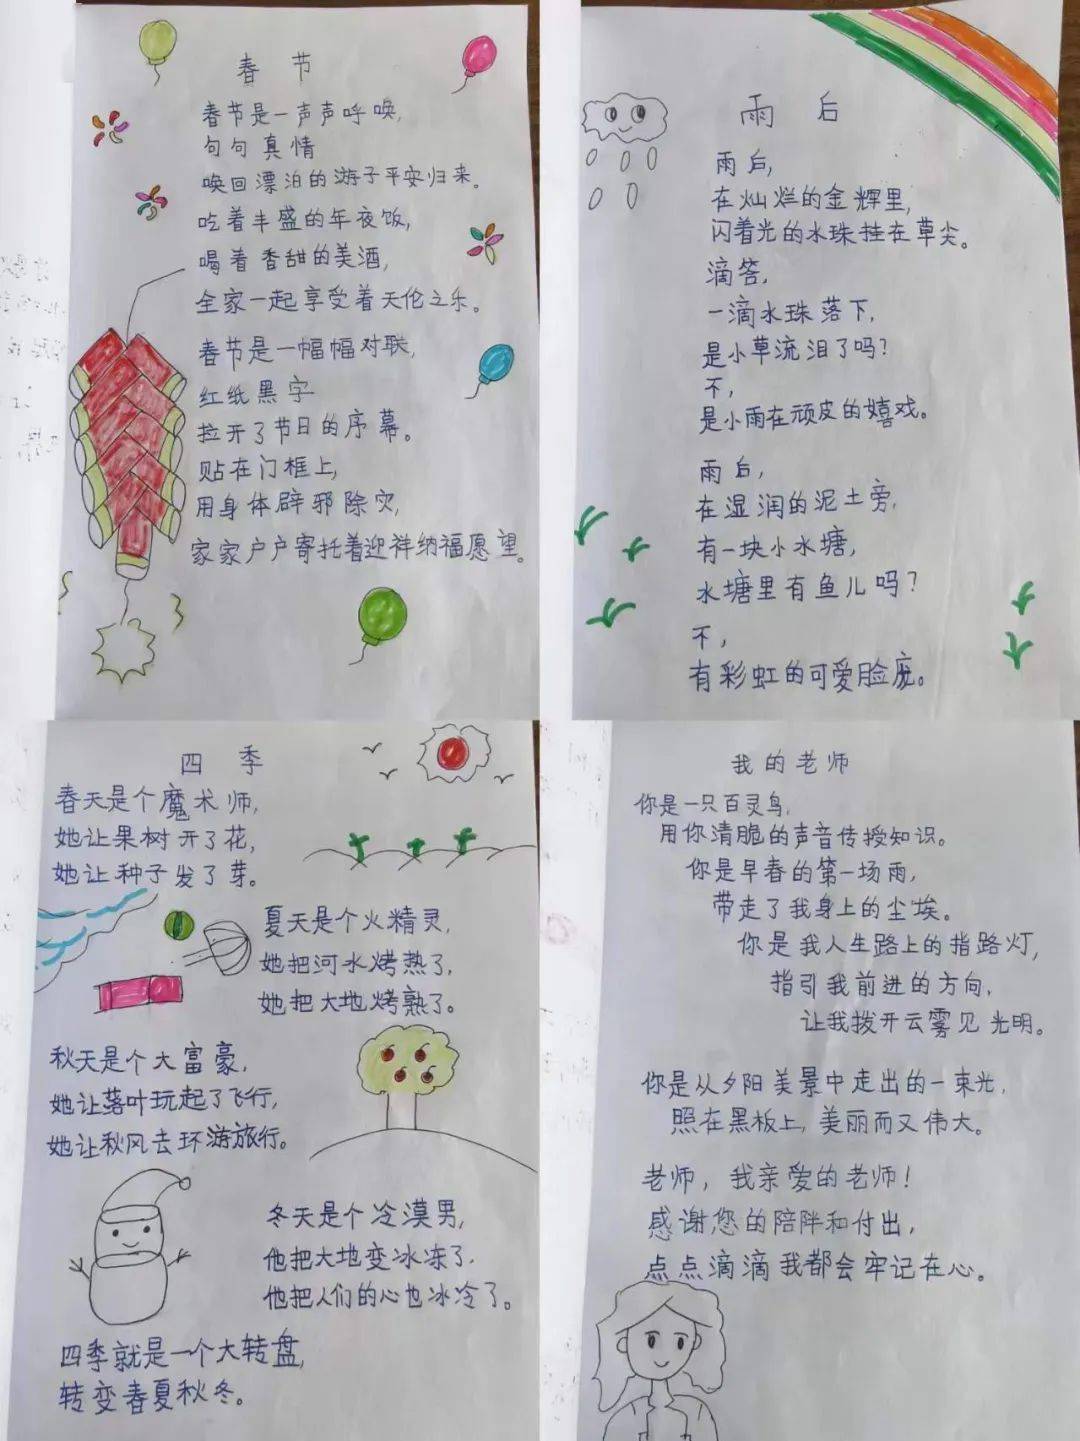 春节
春节是一声声呼唤,
句句真情
唤回漂泊的游子平安归来。
吃着丰盛的年夜饭,
喝着香甜的美酒,
全家一起享受着天伦之乐。
春节是一幅幅对联,
红纸黑字
拉开了节日的序幕。
贴在门框上,
用身体辟邪除灾,
家家户户寄托着迎祥纳福愿望。
雨后
雨后,
在灿烂的金辉里,
闪着光的水珠挂在草尖。
滴答,
一滴水珠落下,
是小草流泪了吗?
不,
是小雨在顽皮的嬉戏。
雨后,
在湿润的泥土旁,
有一块小水塘,
水塘里有鱼儿吗?
不,
有彩虹的可爱脸庞。
四季
春天是个魔术师,
她让果树开了花,
她让种子发了芽。
夏天是个火精灵,
她把河水烤热了,
她把大地烤熟了。
秋天是个大富豪,
她让落叶玩起了飞行,
她让秋风去环游旅行。
冬天是个冷漠男,
他把大地变冰冻了,
他把人们的心也冰冷了。
四季就是一个大转盘,
转变春夏秋冬。
我的老师
你是一只百灵鸟,
用你清脆的声音传授知识。
你是早春的第一场雨,
带走了我身上的尘埃。
你是我人生路上的指路灯,
指引我前进的方向,
让我拨开云雾见光明。
你是从夕阳美景中走出的一束光,
照在黑板上,美丽而又伟大。
老师,我亲爱的老师!
感谢您的陪伴和付出,
点点滴滴我都会牢记在心。